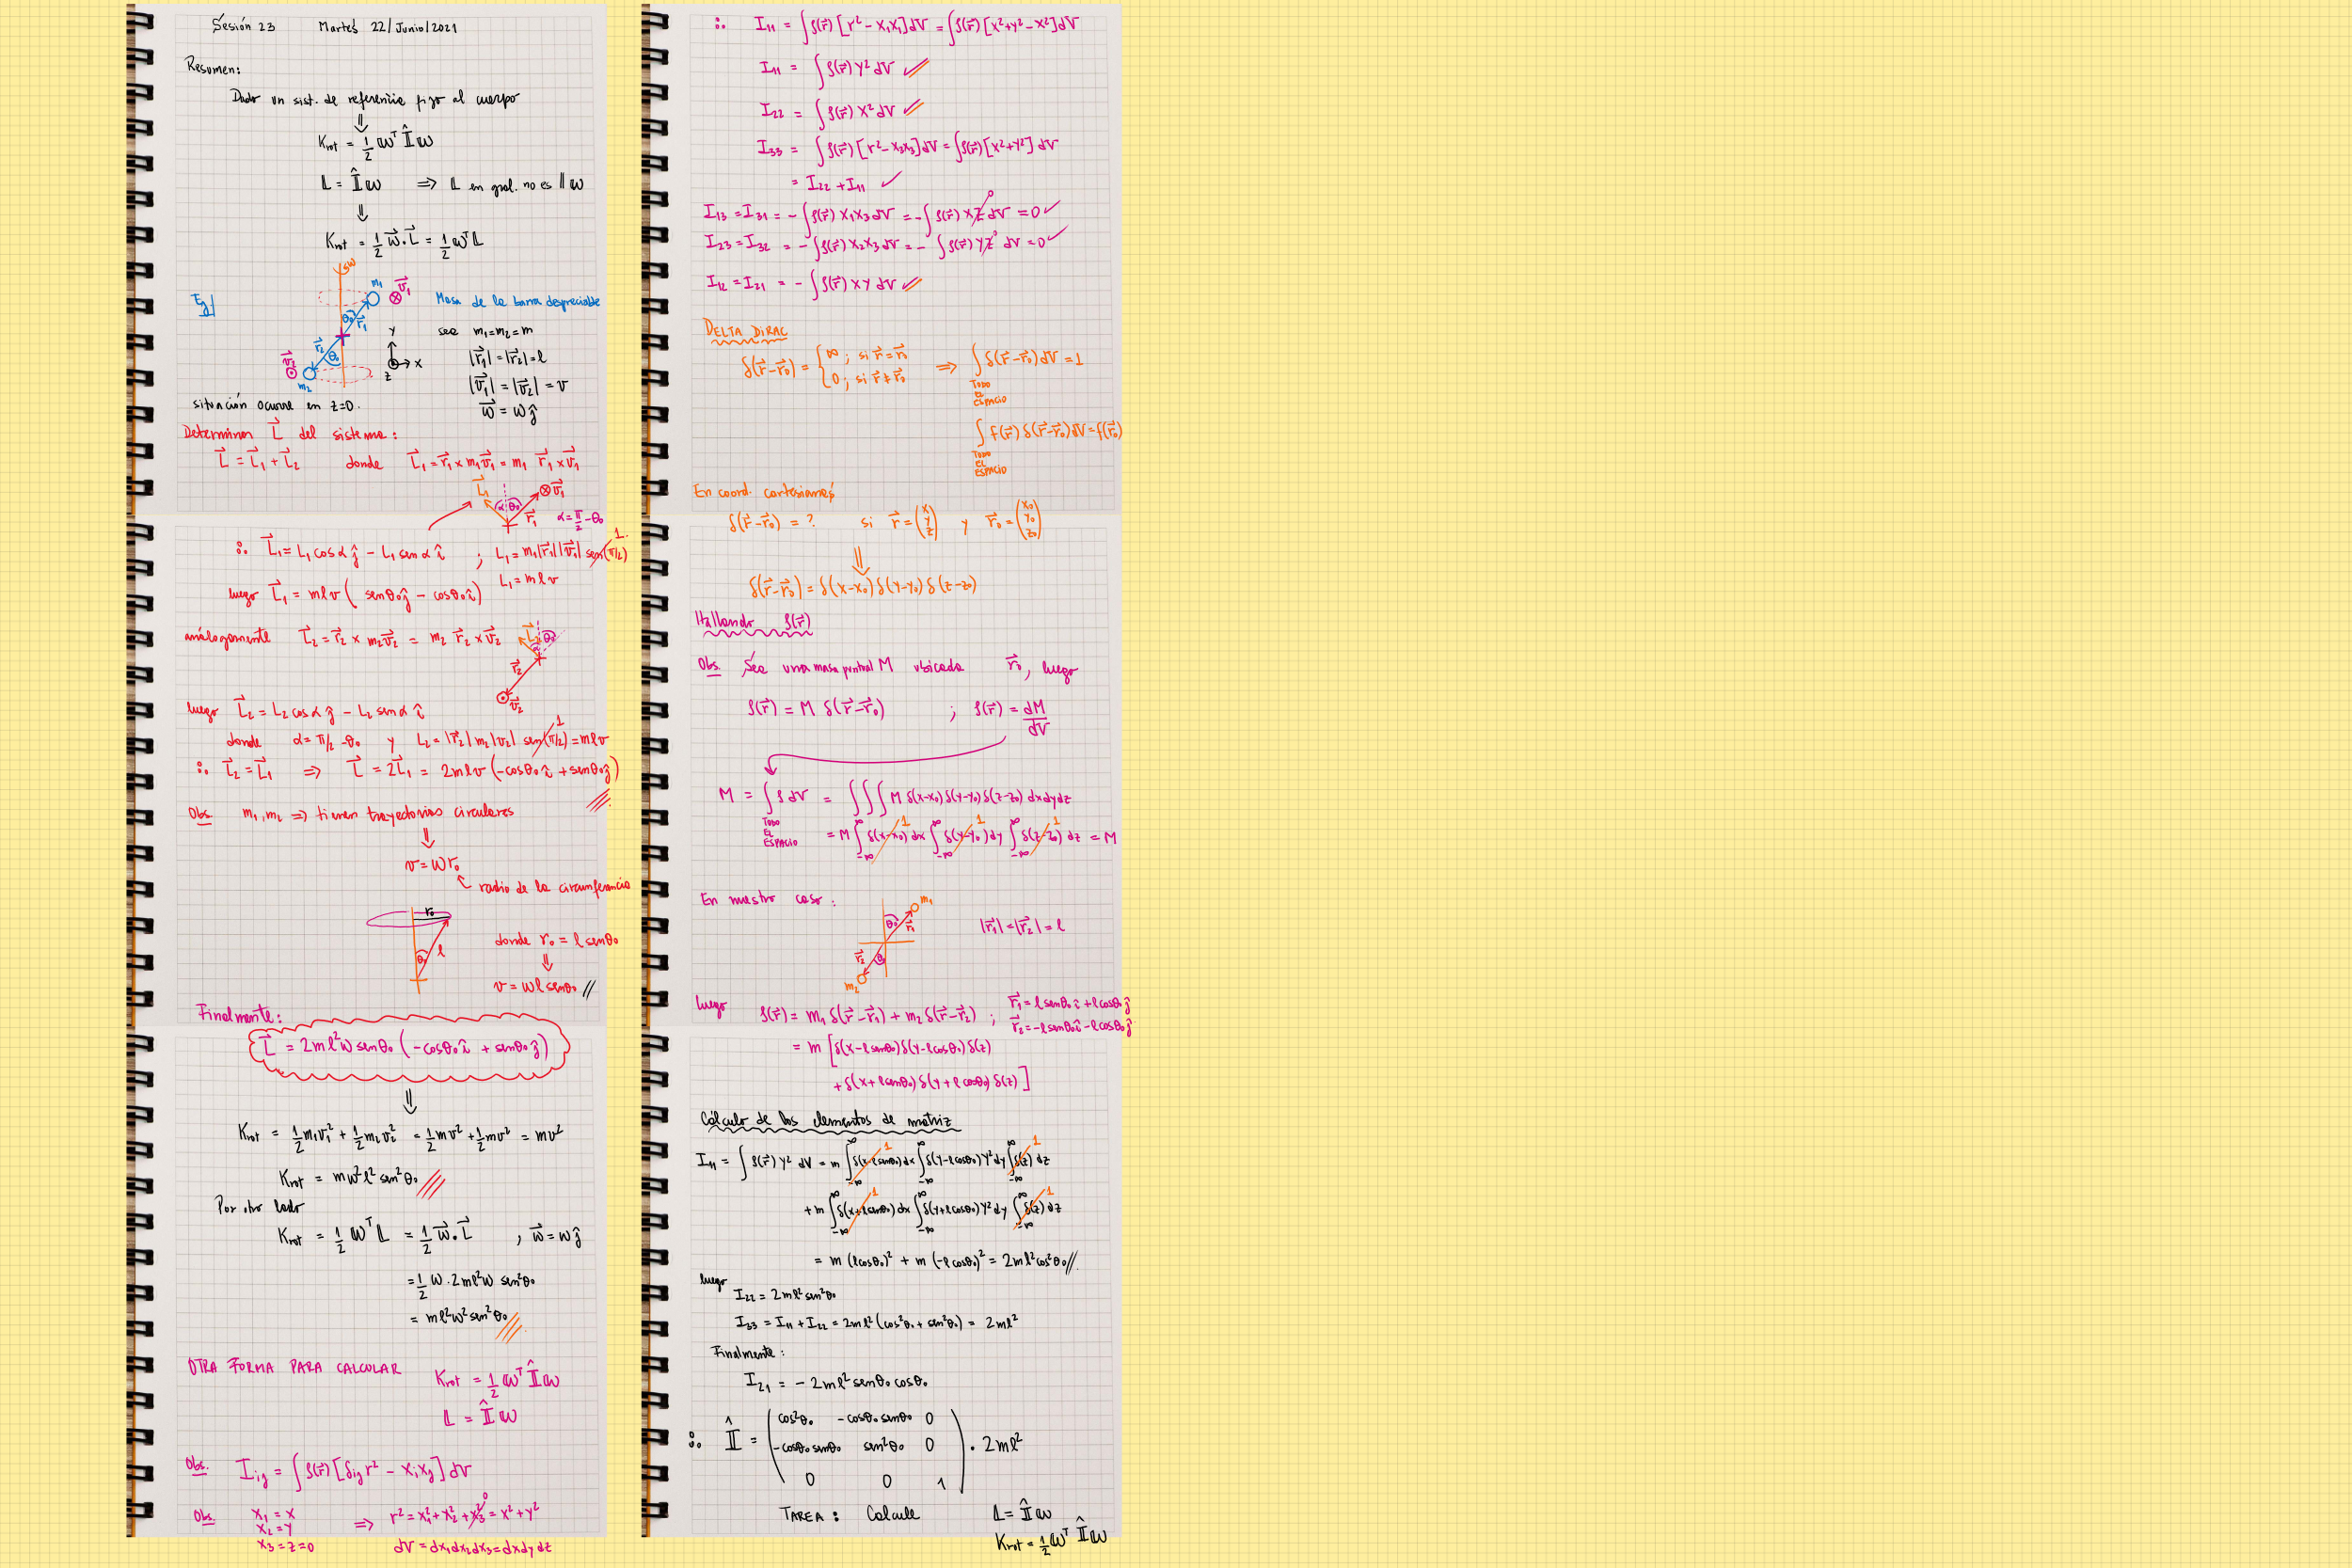 Sesión 23 Martes 22/Junio/2021
Resumen:
Dado un sist. de referencia fijo al cuerpo
⇓
K_rot = 1/2 𝕎^T Î 𝕎
𝕃 = Î 𝕎 ⇒ 𝕃 en gral. no es ∥ 𝕎
⇓
K_rot = 1/2 w⃗·L⃗ = 1/2 𝕎^T 𝕃
Ej|
w
m₁ v⃗₁
θ₀ r⃗₁
r⃗₂ θ₀
v⃗₂
m₂
y
x
z
Masa de la barra despreciable
sea m₁=m₂=m
|r⃗₁|=|r⃗₂|=l
|v⃗₁|=|v⃗₂|=v
w⃗ = w ĵ
situación ocurre en z=0.
Determinar L⃗ del sistema:
L⃗ = L⃗₁ + L⃗₂ donde L⃗₁ = r⃗₁ × m₁v⃗₁ = m₁ r⃗₁ × v⃗₁
L⃗₁ α θ₀ ⊗v⃗₁
r⃗₁ α = π/2 - θ₀
∴ L⃗₁ = L₁ cos α ĵ - L₁ sen α î ; L₁ = m₁|r⃗₁||v⃗₁| sen(π/2) 1
L₁ = m l v
luego L⃗₁ = mlv ( senθ₀ĵ - cosθ₀î )
análogamente L⃗₂ = r⃗₂ × m₂v⃗₂ = m₂ r⃗₂ × v⃗₂
L⃗₂ θ₀
r⃗₂
v⃗₂
luego L⃗₂ = L₂ cos α ĵ - L₂ sen α î
donde α = π/2 - θ₀ y L₂ = |r⃗₂| m₂|v⃗₂| sen(π/2) = mlv 1
∴ L⃗₂ = L⃗₁ ⇒ L⃗ = 2L⃗₁ = 2mlv (-cosθ₀ î + senθ₀ĵ)
Obs. m₁, m₂ ⇒ tienen trayectorias circulares
⇓
v = w r₀
radio de la circunferencia
r₀
θ₀ l
donde r₀ = l senθ₀
⇓
v = wl senθ₀ //
Finalmente:
L⃗ = 2ml²w senθ₀ (-cosθ₀ î + senθ₀ ĵ)
⇓
K_rot = 1/2 m₁v₁² + 1/2 m₂v₂² = 1/2 mv² + 1/2 mv² = mv²
K_rot = mw²l² sen²θ₀
Por otro lado
K_rot = 1/2 𝕎^T 𝕃 = 1/2 w⃗·L⃗ , w⃗ = w ĵ
= 1/2 w · 2ml²w sen²θ₀
= ml²w² sen²θ₀
OTRA FORMA PARA CALCULAR K_rot = 1/2 𝕎^T Î 𝕎
𝕃 = Î 𝕎
Obs. I_ij = ∫ρ(r⃗)[δ_ij r² - x_i x_j] dV
Obs. x₁ = x
x₂ = y
x₃ = z = 0
⇒ r² = x₁² + x₂² + x₃² = x² + y² 0
dV = dx₁dx₂dx₃ = dxdydz
∴ I₁₁ = ∫ρ(r⃗)[r² - x₁x₁]dV = ∫ρ(r⃗)[x²+y²-x²]dV
I₁₁ = ∫ρ(r⃗) y² dV ✓
I₂₂ = ∫ρ(r⃗) x² dV ✓
I₃₃ = ∫ρ(r⃗)[r² - x₃x₃]dV = ∫ρ(r⃗)[x²+y²] dV
= I₂₂ + I₁₁ ✓
I₁₃ = I₃₁ = -∫ρ(r⃗) x₁x₃ dV = -∫ρ(r⃗) xz dV = 0 ✓ 0
I₂₃ = I₃₂ = -∫ρ(r⃗) x₂x₃ dV = -∫ρ(r⃗) yz dV = 0 ✓ 0
I₁₂ = I₂₁ = -∫ρ(r⃗) xy dV ✓
DELTA DIRAC
δ(r⃗-r⃗₀) = { ∞ ; si r⃗ = r⃗₀
0 ; si r⃗ ≠ r⃗₀
⇒ ∫δ(r⃗-r⃗₀)dV = 1
TODO
EL
ESPACIO
∫f(r⃗) δ(r⃗-r⃗₀)dV = f(r⃗₀)
TODO
EL
ESPACIO
En coord. cartesianas
δ(r⃗-r⃗₀) = ? si r⃗ = (x y z) y r⃗₀ = (x₀ y₀ z₀)
⇓
δ(r⃗-r⃗₀) = δ(x-x₀) δ(y-y₀) δ(z-z₀)
Hallando ρ(r⃗)
Obs. Sea una masa puntual M ubicada r⃗₀, luego
ρ(r⃗) = M δ(r⃗-r⃗₀) ; ρ(r⃗) = dM/dV
M = ∫ρ dV = ∫∫∫ M δ(x-x₀)δ(y-y₀)δ(z-z₀) dxdydz
TODO
EL
ESPACIO
= M ∫_{-∞}^{∞} δ(x-x₀) dx ∫_{-∞}^{∞} δ(y-y₀) dy ∫_{-∞}^{∞} δ(z-z₀) dz = M 1 1 1
En nuestro caso:
m₁
θ₀ r⃗₁
r⃗₂ θ₀
m₂
|r⃗₁| = |r⃗₂| = l
luego ρ(r⃗) = m₁ δ(r⃗-r⃗₁) + m₂ δ(r⃗-r⃗₂) ; r⃗₁ = l senθ₀ î + l cosθ₀ ĵ
r⃗₂ = -l senθ₀ î - l cosθ₀ ĵ
= m [ δ(x-l senθ₀)δ(y-l cosθ₀) δ(z)
+ δ(x+l senθ₀) δ(y+l cosθ₀) δ(z) ]
Cálculo de los elementos de matriz
I₁₁ = ∫ρ(r⃗) y² dV = m ∫_{-∞}^{∞} δ(x-l senθ₀)dx ∫_{-∞}^{∞} δ(y-l cosθ₀) y² dy ∫_{-∞}^{∞} δ(z) dz 1 1
+ m ∫_{-∞}^{∞} δ(x+l senθ₀) dx ∫_{-∞}^{∞} δ(y+l cosθ₀) y² dy ∫_{-∞}^{∞} δ(z) dz 1 1
= m (l cosθ₀)² + m (-l cosθ₀)² = 2ml² cos²θ₀ //
luego
I₂₂ = 2ml² sen²θ₀
I₃₃ = I₁₁ + I₂₂ = 2ml² (cos²θ₀ + sen²θ₀) = 2ml²
Finalmente:
I₂₁ = -2ml² senθ₀ cosθ₀
∴ Î = ( cos²θ₀ -cosθ₀ senθ₀ 0
-cosθ₀ senθ₀ sen²θ₀ 0
0 0 1 ) · 2ml²
TAREA: Calcule 𝕃 = Î 𝕎
K_rot = 1/2 𝕎^T Î 𝕎